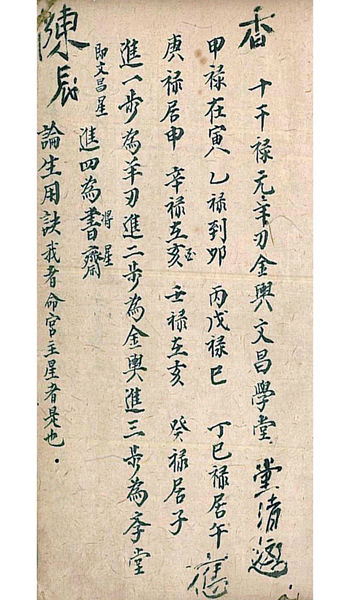 香 十干禄元羊刃金輿文昌学堂
甲禄在寅 乙禄到卯 丙戊禄巳 丁巳禄居午
庚禄居申 辛禄在亥 壬禄在亥 癸禄居子
進一步為羊刃進二步為金輿進三步為李堂
即文昌星
進四為書齋
将星
陳
論生用訣我者命宮主星者是也.